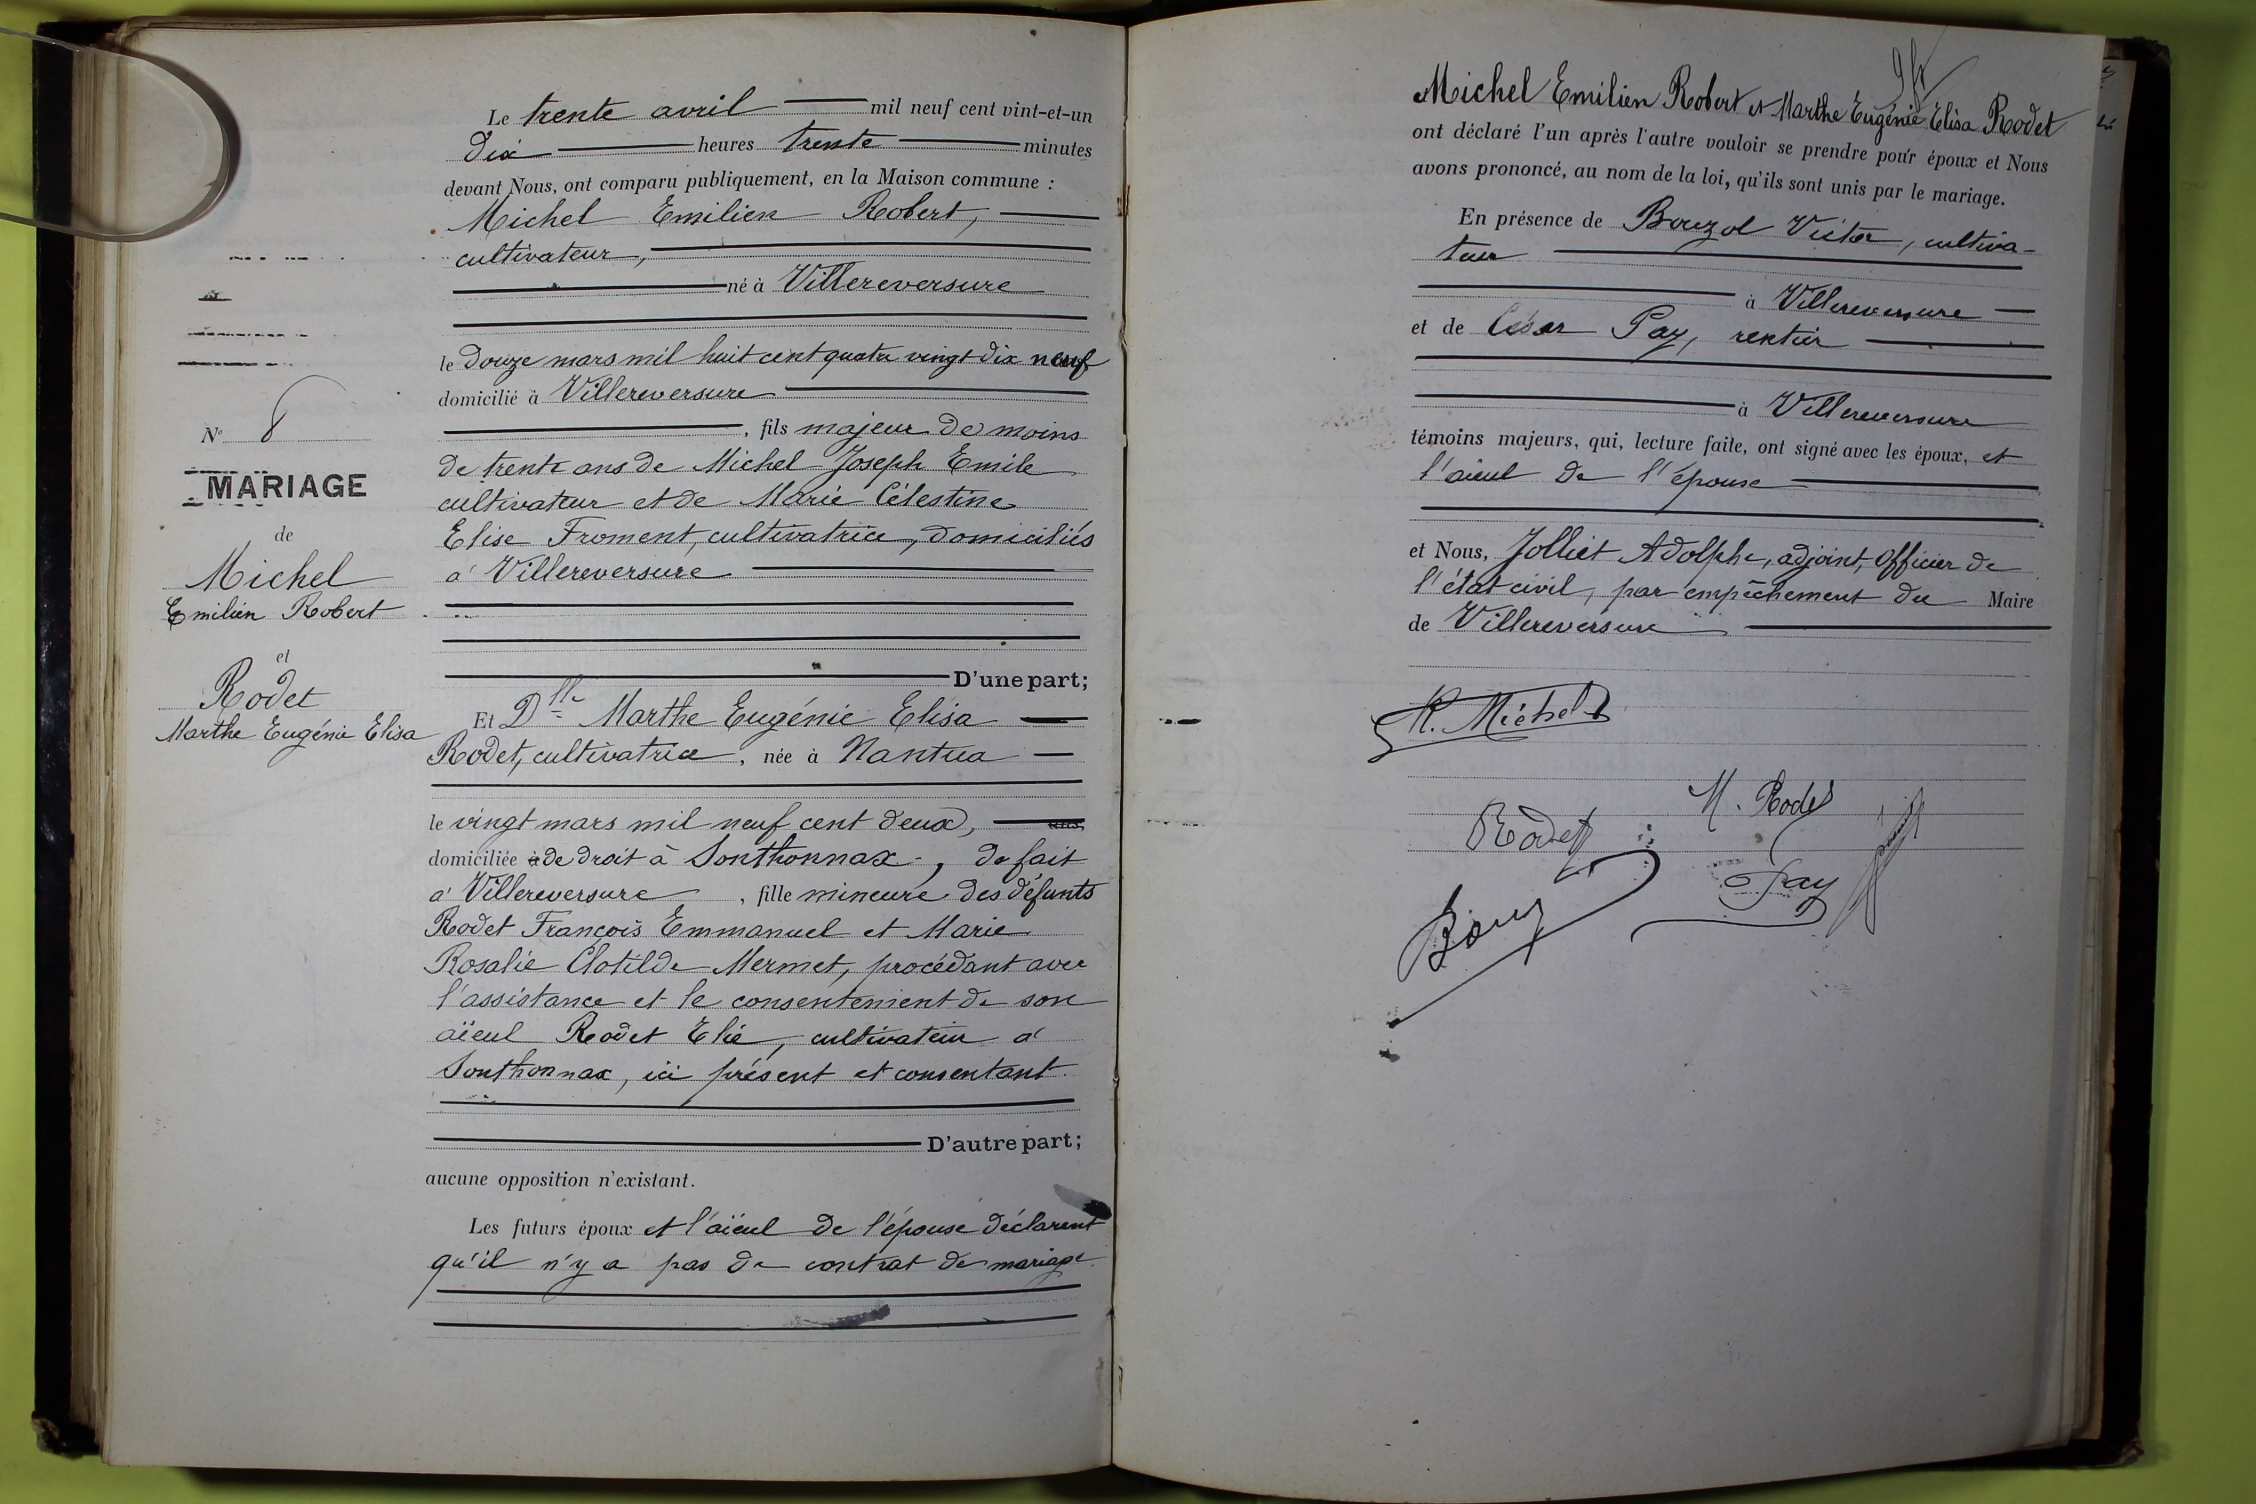 N° 8
MARIAGE
de
Michel
Emilien Robert
et
Rodet
Marthe Eugénie Elisa
Le trente avril mil neuf cent vint-et-un
dix heures trente minutes
devant Nous, ont comparu publiquement, en la Maison commune :
Michel Emilien Robert,
cultivateur,
né à Villereversure
le douze mars mil huit cent quatre vingt dix neuf
domicilié à Villereversure
, fils majeur de moins
de trente ans de Michel Joseph Emile
cultivateur et de Marie Célestine
Elise Froment, cultivatrice, domiciliés
à Villereversure
D'une part;
Et Dlle Marthe Eugénie Elisa
Rodet, cultivatrice, née à Nantua
le vingt mars mil neuf cent deux, ans,
domiciliée à de droit à Sonthonnax, de fait
à Villereversure, fille mineure des défunts
Rodet François Emmanuel et Marie
Rosalie Clotilde Mermet, procédant avec
l'assistance et le consentement de son
aïeul Rodet Elie, cultivateur à
Sonthonnax, ici présent et consentant.
D'autre part;
aucune opposition n'existant.
Les futurs époux et l'aïeul de l'épouse déclarent
qu'il n'y a pas de contrat de mariage.
Michel Emilien Robert et Marthe Eugénie Elisa Rodet
ont déclaré l'un après l'autre vouloir se prendre pour époux et Nous
avons prononcé, au nom de la loi, qu'ils sont unis par le mariage.
En présence de Bouzol Victor, cultiva-
teur
à Villereversure
et de César Pay, rentier
à Villereversure
témoins majeurs, qui, lecture faite, ont signé avec les époux, et
l'aïeul de l'épouse
et Nous, Jolliet Adolphe, adjoint, Officier de
l'état civil, par empêchement du Maire
de Villereversure
R. Michel
M. Rodet
Rodet
Pay
Bouz